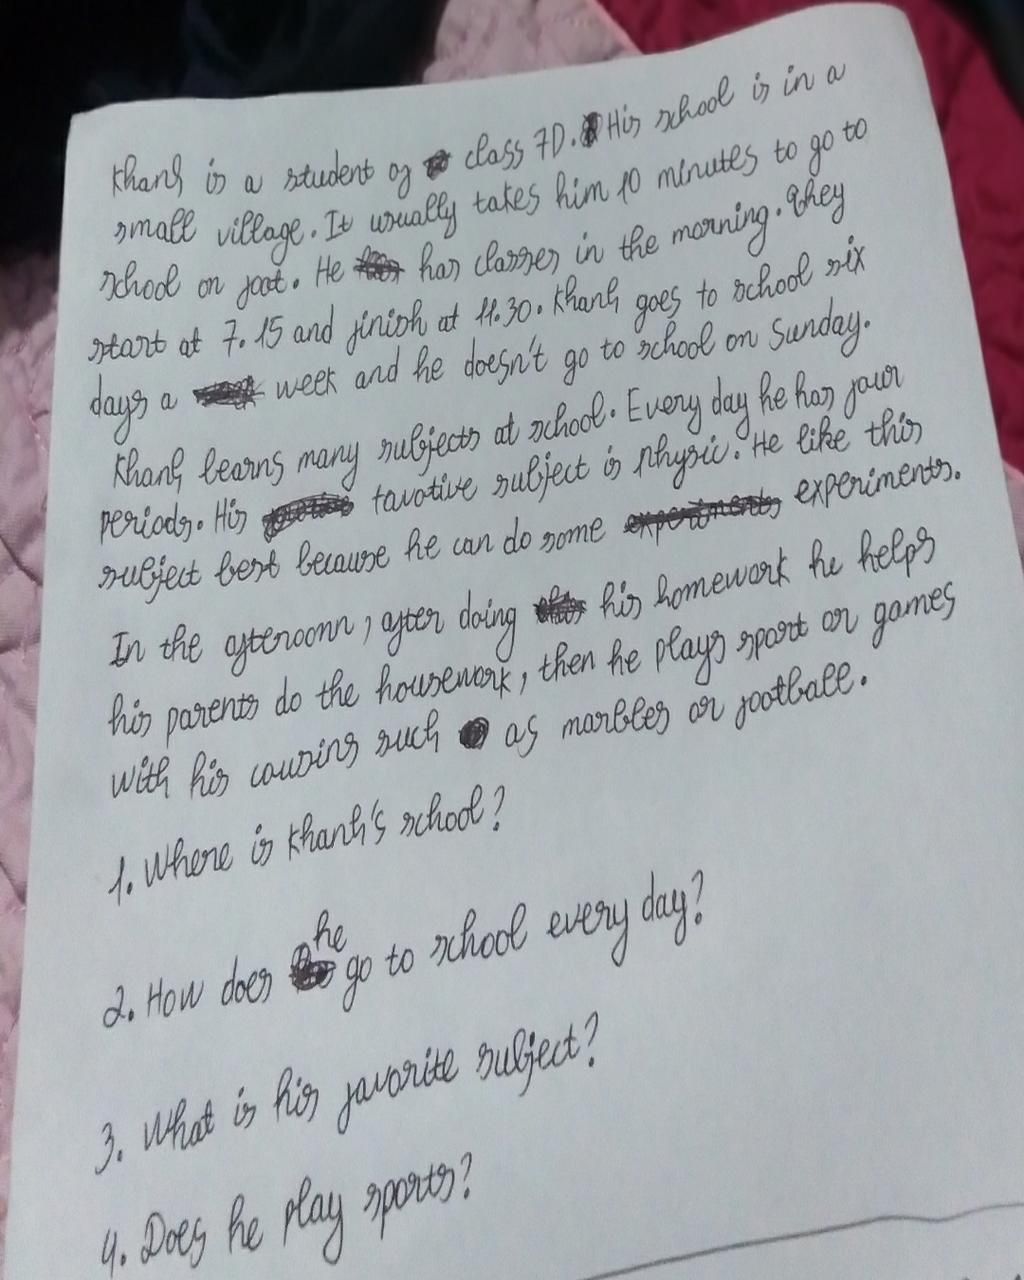 Khanh is a student of class 7D. His school is in a
small village. It usually takes him 10 minutes to go to
school on foot. He has classes in the morning. They
start at 7.15 and finish at 11.30. Khanh goes to school six
days a week and he doesn't go to school on Sunday.
Khanh learns many subjects at school. Every day he has four
periods. His tavotive subject is physic. He like this
subject best because he can do some experiments experiments.
In the afteroonn, after doing his homework he helps
his parents do the housework, then he plays sport or games
with his cousins such as marbles or football.
1. Where is Khanh's school?
2. How does he go to school every day?
3. What is his favorite subject?
4. Does he play sports?